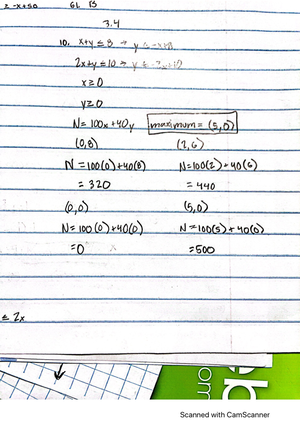 2 -x+50 61. B
3.4
10. x+y ≤ 8 → y ≤ -x+8
2x+y ≤ 10 → y ≤ -2x+10
x ≥ 0
y ≥ 0
N = 100x + 40y maximum = (5,0)
(0,8) (2,6)
N = 100(0)+40(8) N = 100(2)+40(6)
= 320 = 440
(0,0) (5,0)
N = 100(0)+40(0) N = 100(5)+40(0)
= 0 = 500
≤ 2x
om
Scanned with CamScanner